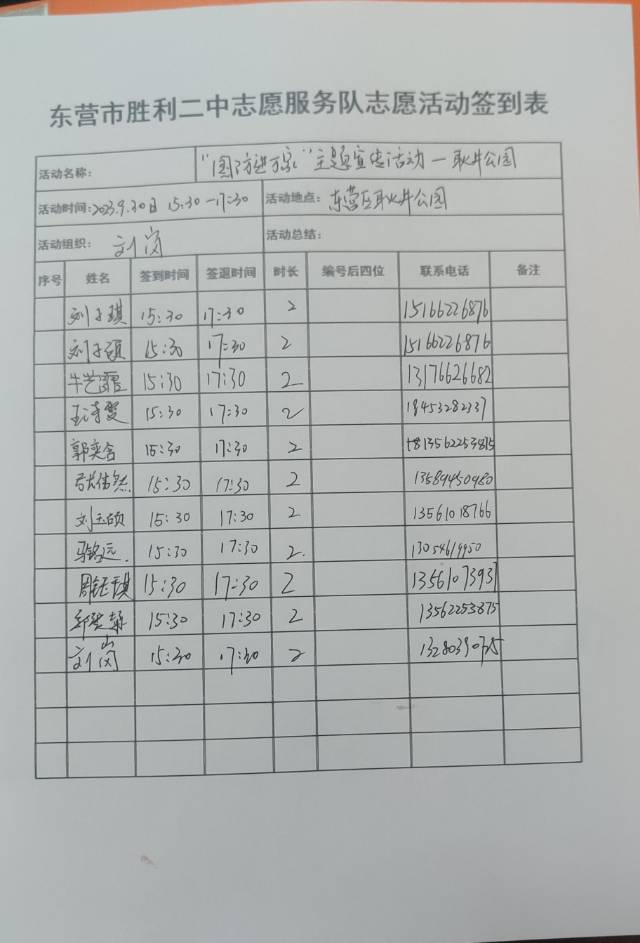 东营市胜利二中志愿服务队志愿活动签到表
活动名称： "国防进万家"主题宣传活动—耿井公园
活动时间：2023.9.30日 15:30—17:30 活动地点：东营区耿井公园
活动组织： 刘岗 活动总结：
序号 姓名 签到时间 签退时间 时长 编号后四位 联系电话 备注
刘子琪 15:30 17:30 2 15166226876
刘子硕 15:30 17:30 2 15166226876
牛艺霏 15:30 17:30 2 13176626682
王诗雯 15:30 17:30 2 18453282337
郭奕含 15:30 17:30 2
张倍然 15:30 17:30 2 13589450980
刘玉硕 15:30 17:30 2 13561018766
骆铭远 15:30 17:30 2
周钰琪 15:30 17:30 2 1356107393
15:30 17:30 2 13562253875
刘岗 15:30 17:30 2